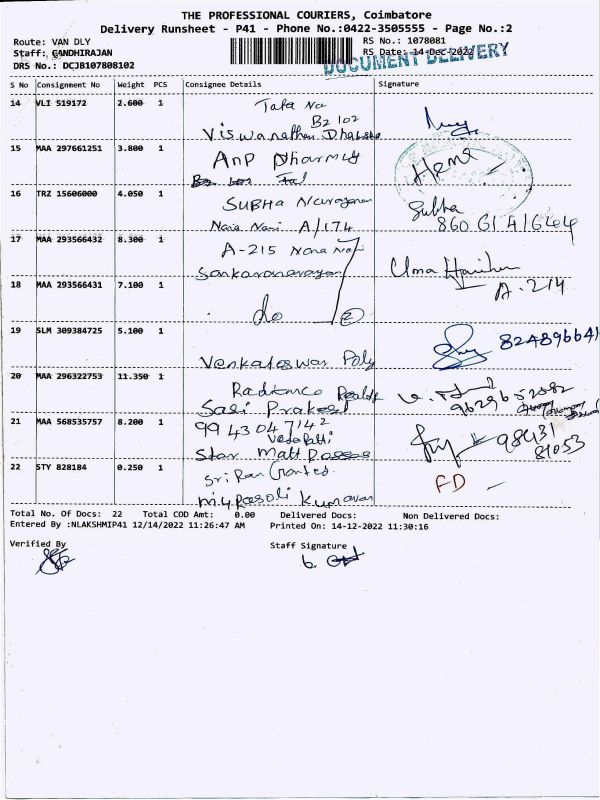 THE PROFESSIONAL COURIERS, Coimbatore
Delivery Runsheet - P41 - Phone No.:0422-3505555 - Page No.:2
Route: VAN DLY RS No.: 1078081
Staff: GANDHIRAJAN RS Date: 14-Dec-2022
DRS No.: DCJB107808102 DOCUMENT DELIVERY
S No Consignment No Weight PCS Consignee Details Signature
14 VLI 519172 2.600 1 Tafa Na
B2 102
Viswanathan
15 MAA 297661251 3.800 1 AnP Pharmcy Hema
16 TRZ 15606000 4.050 1 SUBHA Narayanan Subha
Nana Nani A/174
17 MAA 293566432 8.300 1 A-215 Nana Nani
Sankaranarayan Uma
18 MAA 293566431 7.100 1 do A-214
19 SLM 309384725 5.100 1
Venkateswar Poly
20 MAA 296322753 11.350 1 Radiance
Sasi Prakesh
21 MAA 568535757 8.200 1 99 43 04 7142 98431
Vedapatti 81053
Star Matt
22 STY 828184 0.250 1 Sri Ran FD
Kumaran
Total No. Of Docs: 22 Total COD Amt: 0.00 Delivered Docs: Non Delivered Docs:
Entered By :NLAKSHMIP41 12/14/2022 11:26:47 AM Printed On: 14-12-2022 11:30:16
Verified By Staff Signature